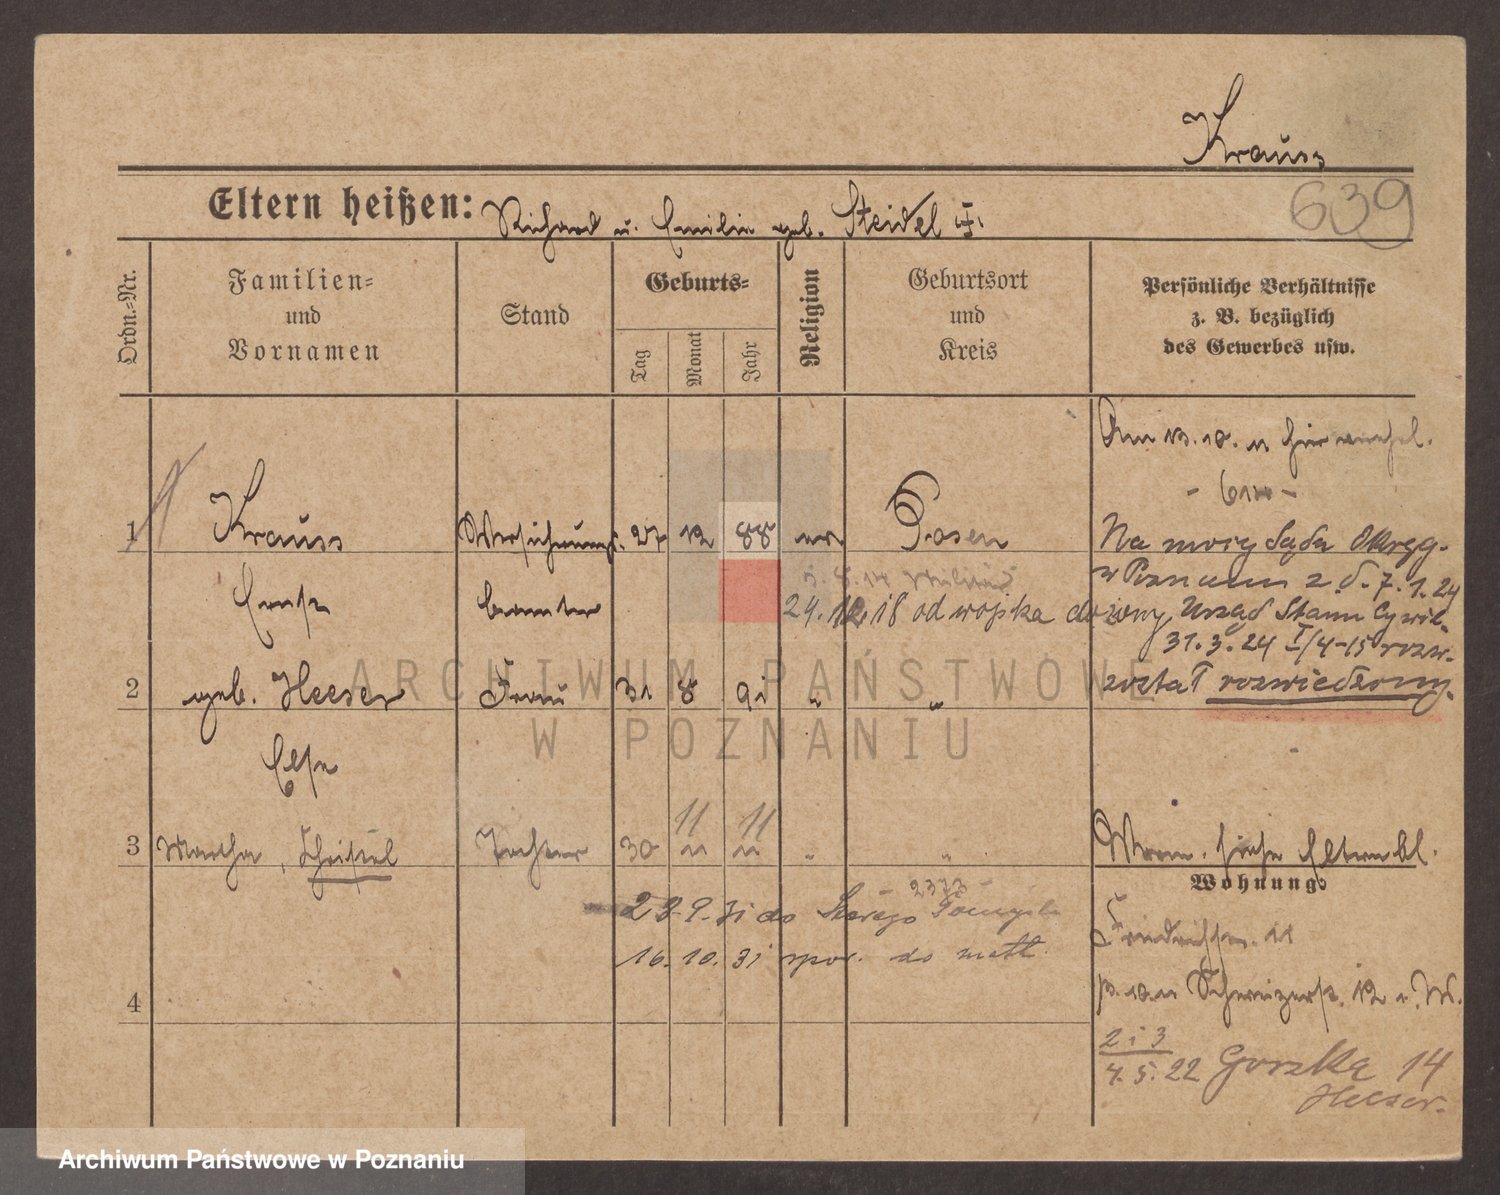 Krauss
639
Eltern heißen: Richard u. Emilie geb. Steidel
Ordn.-Nr.
Familien-
und
Vornamen
Stand
Geburts-
Tag
Monat
Jahr
Religion
Geburtsort
und
Kreis
Persönliche Verhältnisse
z. B. bezüglich
des Gewerbes usw.
1 Krauss Versicherungs- 27 12 88 ev Posen
Ernst beamter
24.12.18 od wojska
2 geb. Heeser Frau 31 8 91 " "
Else
3 Martha, Christel Tochter 30 11 11 " "
11 11
2377
28.9.31 do Starego Tomyśla
16.10.31 spow. do meld.
4
Am 13.10.11
Na mocy Sądu Okręg.
w Poznaniu z d. 7.1.24
Urząd Stanu Cywil.
31.3.24 I/4-15 rozw.
został rozwiedziony.
Verm. siehe Elternbl.
Wohnung:
Friedrichstr. 11
Schweizerstr. 12
2 i 3
4.5.22 Gorzka 14
Heeser.
ARCHIWUM PAŃSTWOWE
W POZNANIU
Archiwum Państwowe w Poznaniu